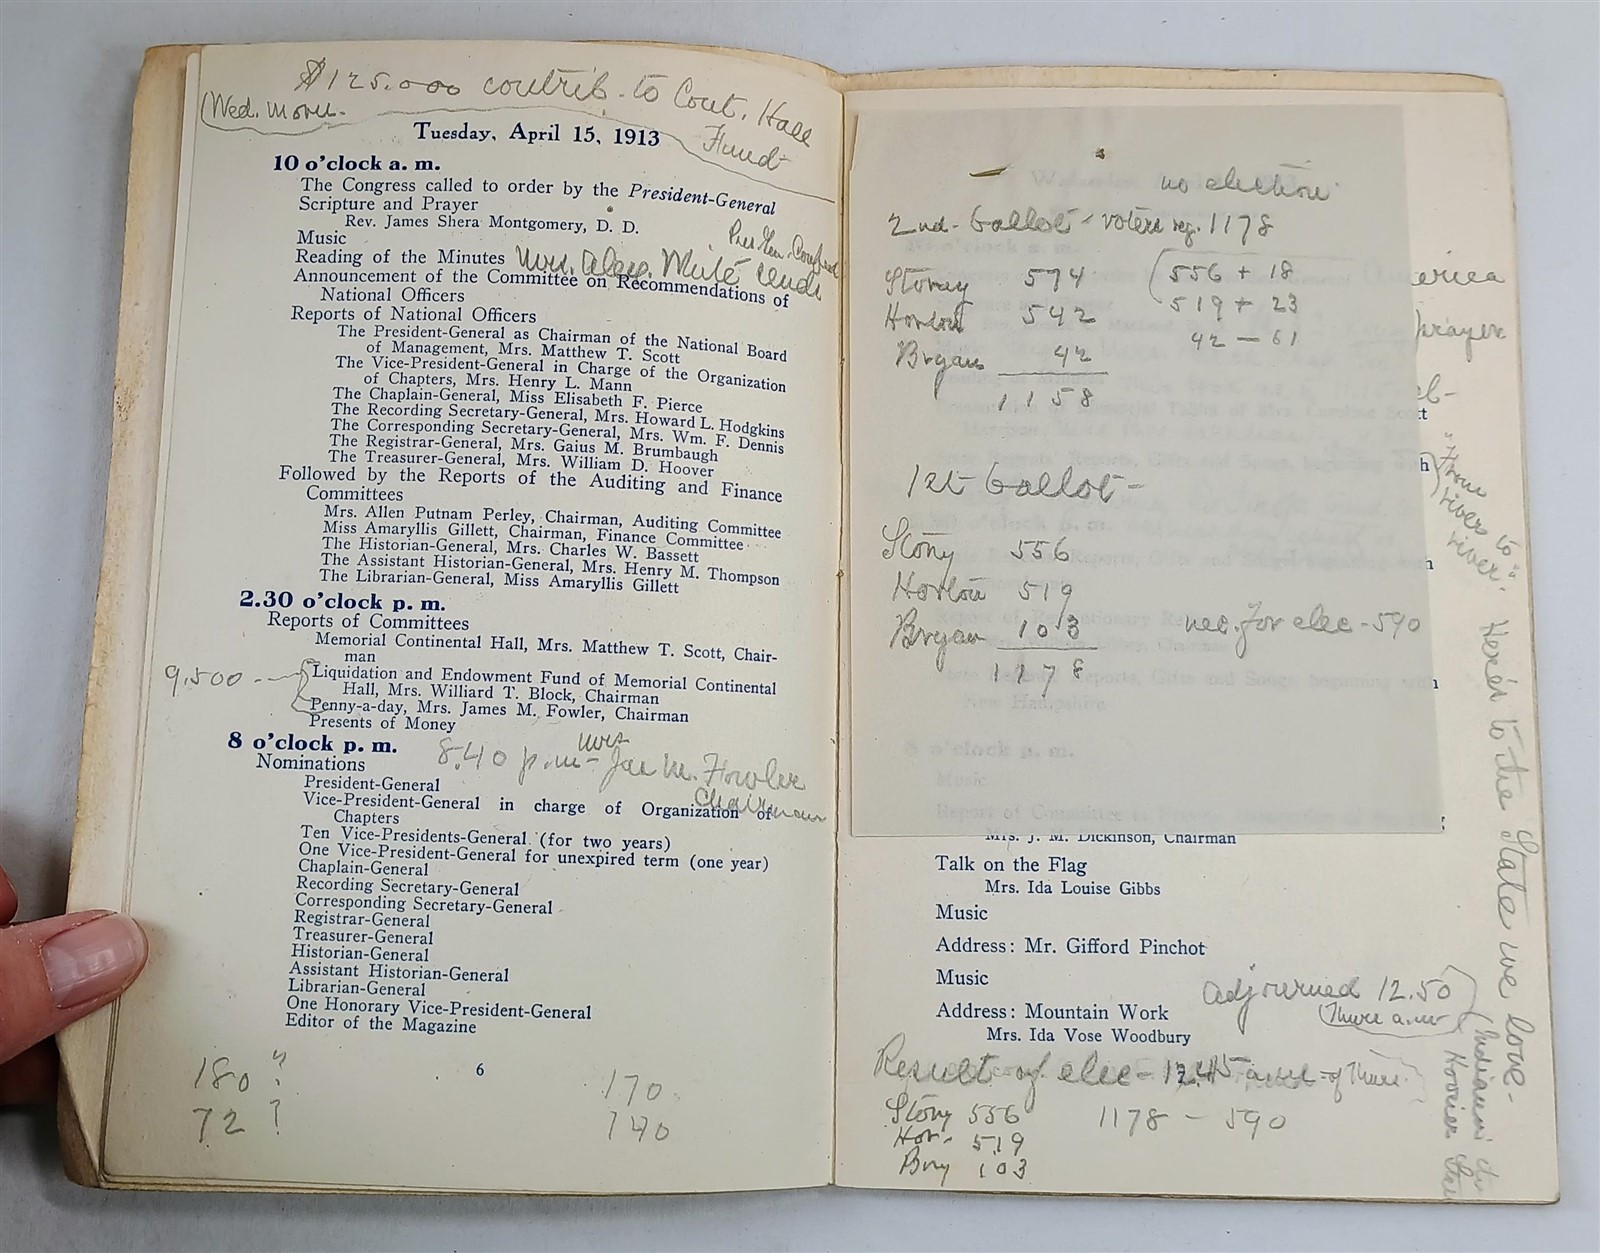 $125.000 contrib. to Cont. Hall
Fund
(Wed. morn.
Tuesday, April 15, 1913
10 o'clock a. m.
The Congress called to order by the President-General
Scripture and Prayer
Rev. James Shera Montgomery, D. D.
Music
Reading of the Minutes
Mrs.
Announcement of the Committee on Recommendations of
National Officers
Reports of National Officers
The President-General as Chairman of the National Board
of Management, Mrs. Matthew T. Scott
The Vice-President-General in Charge of the Organization
of Chapters, Mrs. Henry L. Mann
The Chaplain-General, Miss Elisabeth F. Pierce
The Recording Secretary-General, Mrs. Howard L. Hodgkins
The Corresponding Secretary-General, Mrs. Wm. F. Dennis
The Registrar-General, Mrs. Gaius M. Brumbaugh
The Treasurer-General, Mrs. William D. Hoover
Followed by the Reports of the Auditing and Finance
Committees
Mrs. Allen Putnam Perley, Chairman, Auditing Committee
Miss Amaryllis Gillett, Chairman, Finance Committee
The Historian-General, Mrs. Charles W. Bassett
The Assistant Historian-General, Mrs. Henry M. Thompson
The Librarian-General, Miss Amaryllis Gillett
2.30 o'clock p. m.
Reports of Committees
Memorial Continental Hall, Mrs. Matthew T. Scott, Chair-
man
9.500
Liquidation and Endowment Fund of Memorial Continental
Hall, Mrs. Williard T. Block, Chairman
Penny-a-day, Mrs. James M. Fowler, Chairman
Presents of Money
8 o'clock p. m.
8.40 p.m - Mrs Jas M. Fowler
Chairman
Nominations
President-General
Vice-President-General in charge of Organization of
Chapters
Ten Vice-Presidents-General (for two years)
One Vice-President-General for unexpired term (one year)
Chaplain-General
Recording Secretary-General
Corresponding Secretary-General
Registrar-General
Treasurer-General
Historian-General
Assistant Historian-General
Librarian-General
One Honorary Vice-President-General
Editor of the Magazine
6
180 ?
72 ?
170
140
no election
2nd. Ballot - voters reg. 1178
Story 574 (556 + 18
Horton 542 519 + 23
Bryan 42 42 - 61
1158
1st Ballot -
Story 556
Horton 519
Bryan 103 nec. for elec - 590
1178
America
prayer
"From
river to
river"
Here's to the State we love -
Mrs. J. M. Dickinson, Chairman
Talk on the Flag
Mrs. Ida Louise Gibbs
Music
Address: Mr. Gifford Pinchot
Music
Address: Mountain Work
Mrs. Ida Vose Woodbury
adjourned 12.50
(Thurs a.m
Result of elec - 12.45 a.m - of Thurs
Story 556
Hor- 519
Bry 103
1178 - 590
Hoosier